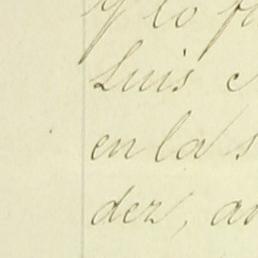 y lo
Luis
en la
dez, a